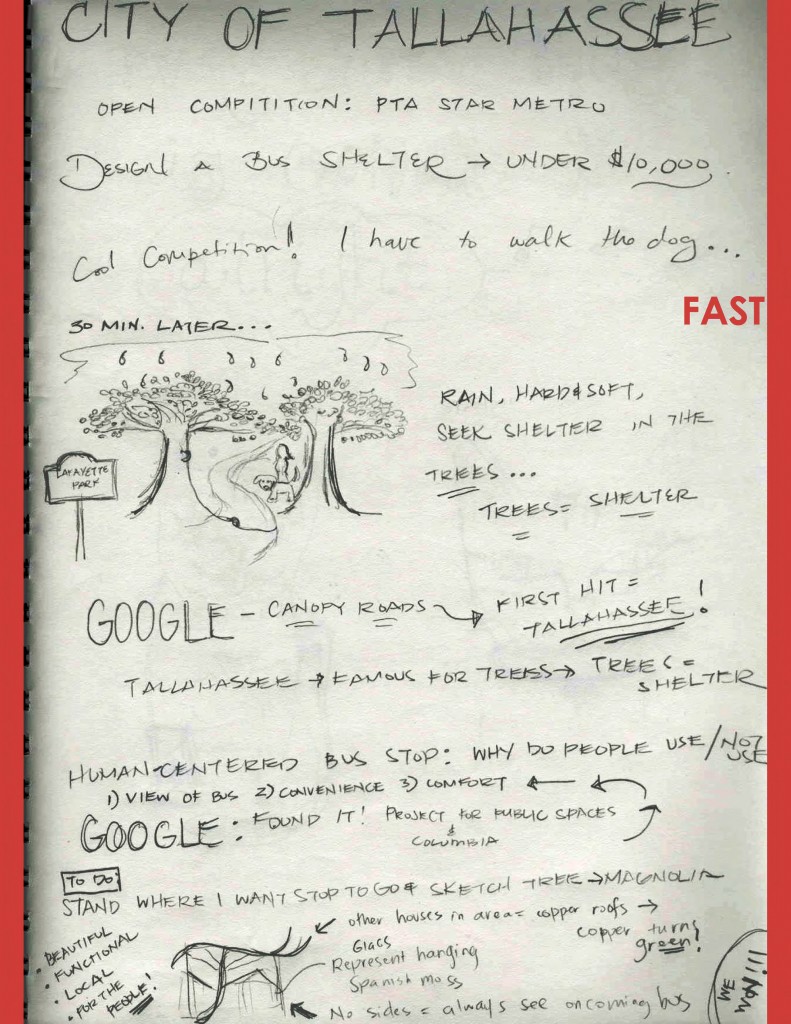 CITY OF TALLAHASSEE
OPEN COMPITITION: PTA STAR METRO
DESIGN A BUS SHELTER → UNDER $10,000.
Cool Competition! I have to walk the dog...
FAST
30 MIN. LATER...
RAIN, HARD & SOFT,
SEEK SHELTER IN THE
TREES...
TREES = SHELTER
LAFAYETTE
PARK
GOOGLE - CANOPY ROADS → FIRST HIT =
TALLAHASSEE!
TALLAHASSEE → FAMOUS FOR TREES → TREES =
SHELTER
HUMAN-CENTERED BUS STOP: WHY DO PEOPLE USE/NOT
USE
1) VIEW OF BUS 2) CONVENIENCE 3) COMFORT ← ←
GOOGLE: FOUND IT! PROJECT FOR PUBLIC SPACES
&
COLUMBIA
TO DO:
STAND WHERE I WANT STOP TO GO & SKETCH TREE → MAGNOLIA
• BEAUTIFUL
• FUNCTIONAL
• LOCAL
• FOR THE
PEOPLE!
other houses in area = copper roofs →
copper turns
green!
Glass
Represent hanging
Spanish moss
No sides = always see oncoming bus
WE
WON!!!